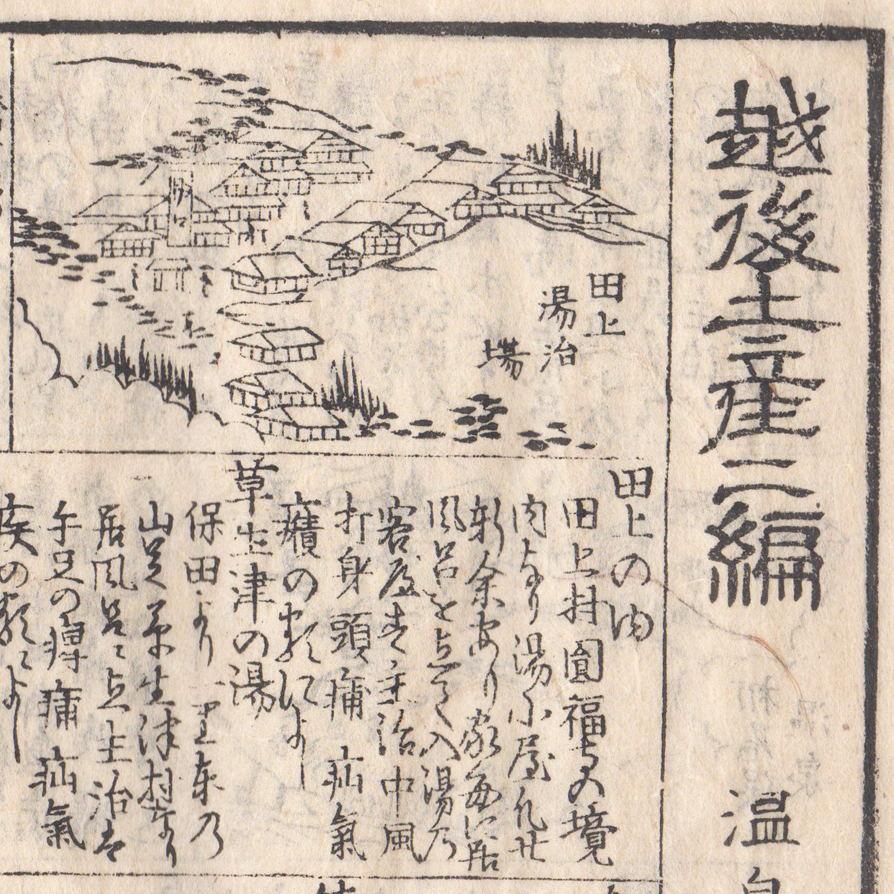 越後土産二編
温泉
田上
湯治
場
田上の湯
田上村圓福寺の境
内なり湯小屋凡廿
軒余あり家毎に居
風呂を点て入湯乃
客屋す主治中風
打身頭痛疝氣
癪の類によし
草生津の湯
保田より一里東乃
山足草生津村なり
居風呂ニ点主治ハ
手足の痺痛疝氣
疾の類によし